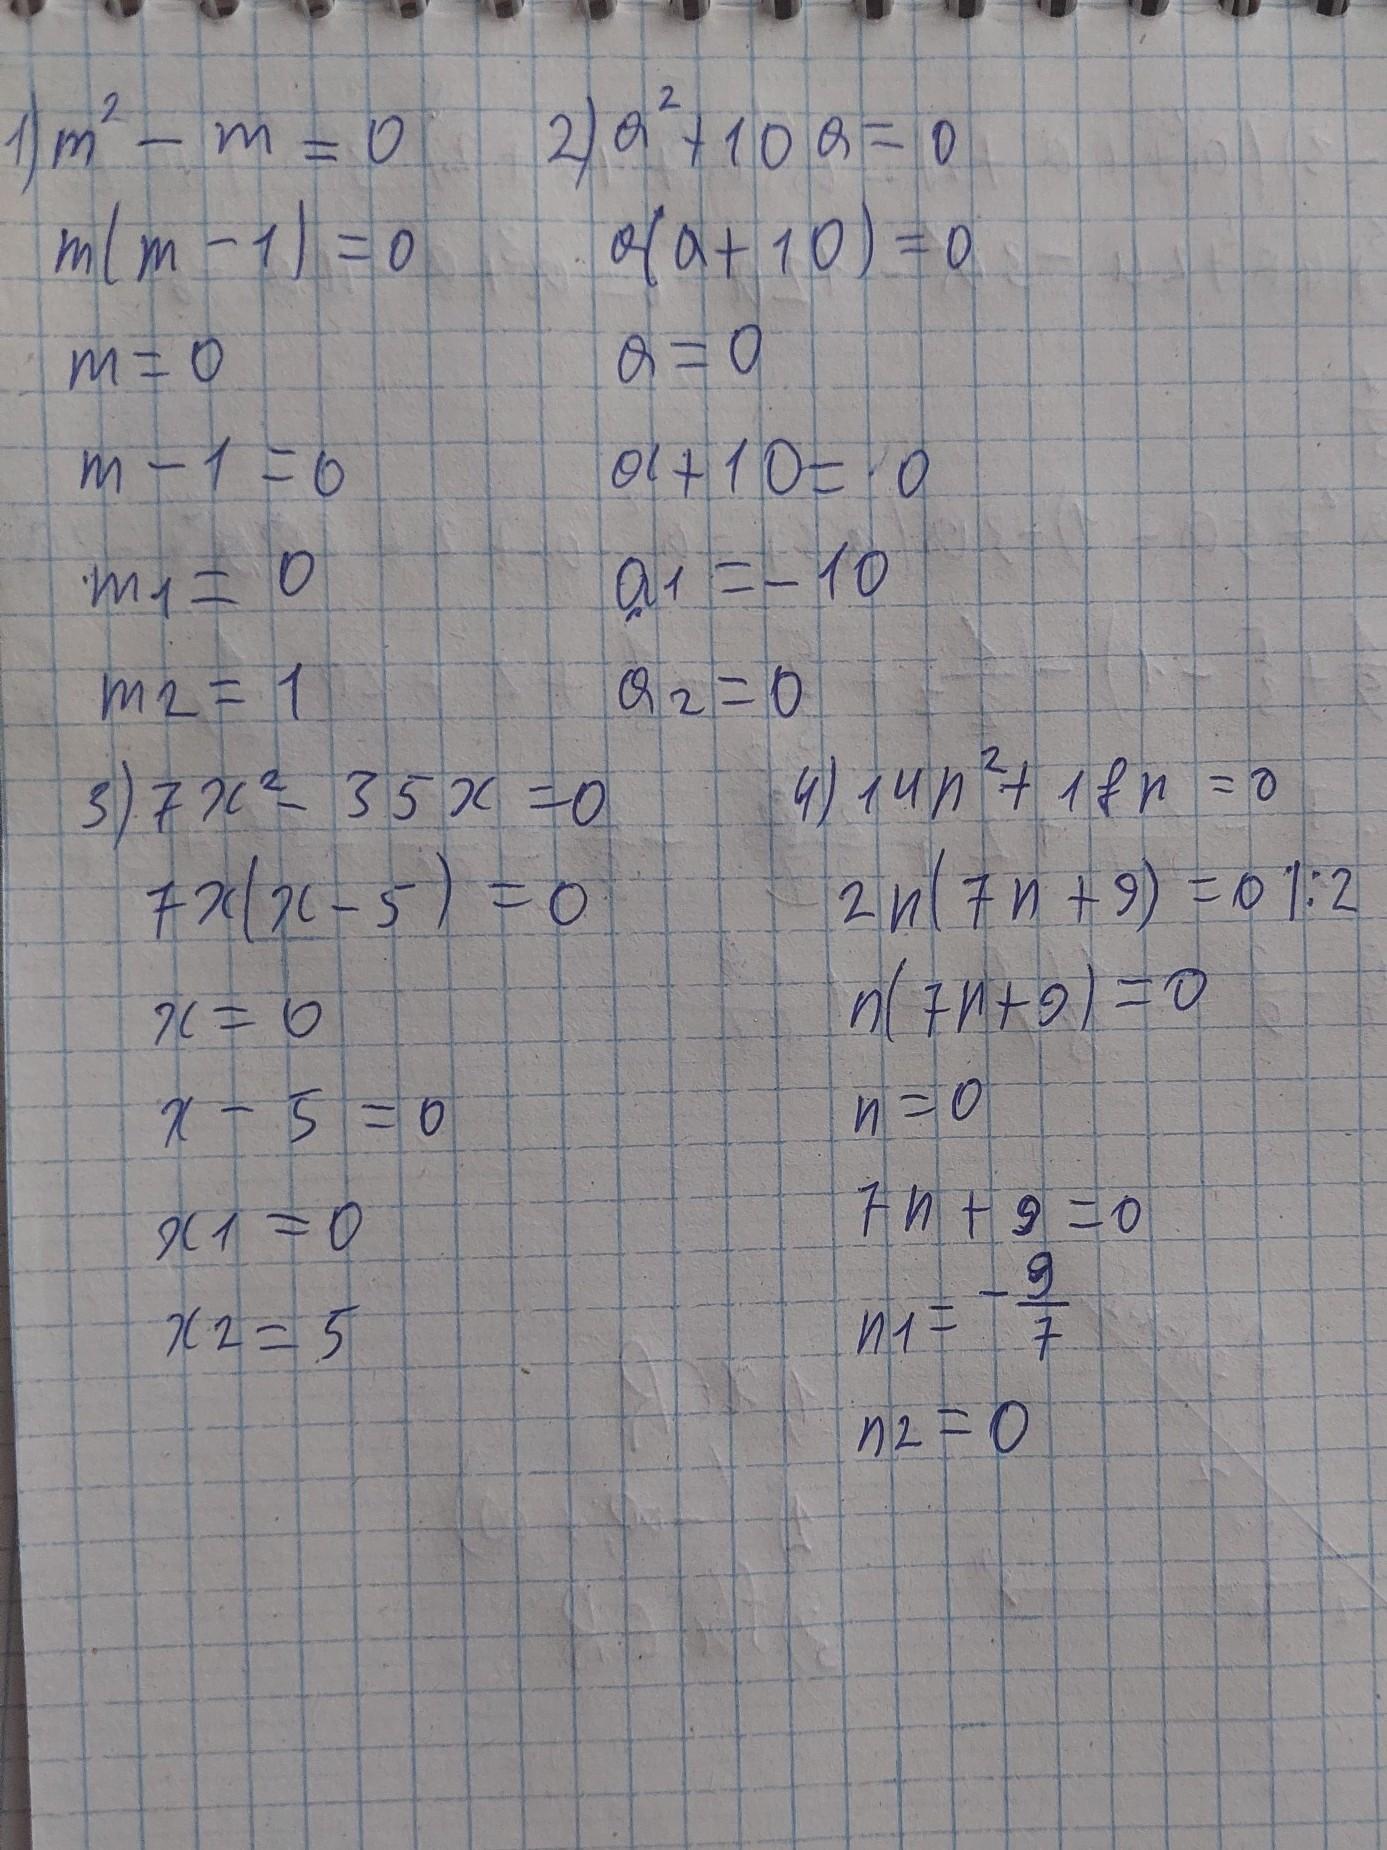 1) m² - m = 0
m(m - 1) = 0
m = 0
m - 1 = 0
m1 = 0
m2 = 1
2) a² + 10a = 0
a(a + 10) = 0
a = 0
a + 10 = 0
a1 = -10
a2 = 0
3) 7x² - 35x = 0
7x(x - 5) = 0
x = 0
x - 5 = 0
x1 = 0
x2 = 5
4) 14n² + 18n = 0
2n(7n + 9) = 0 |:2
n(7n + 9) = 0
n = 0
7n + 9 = 0
n1 = -9/7
n2 = 0